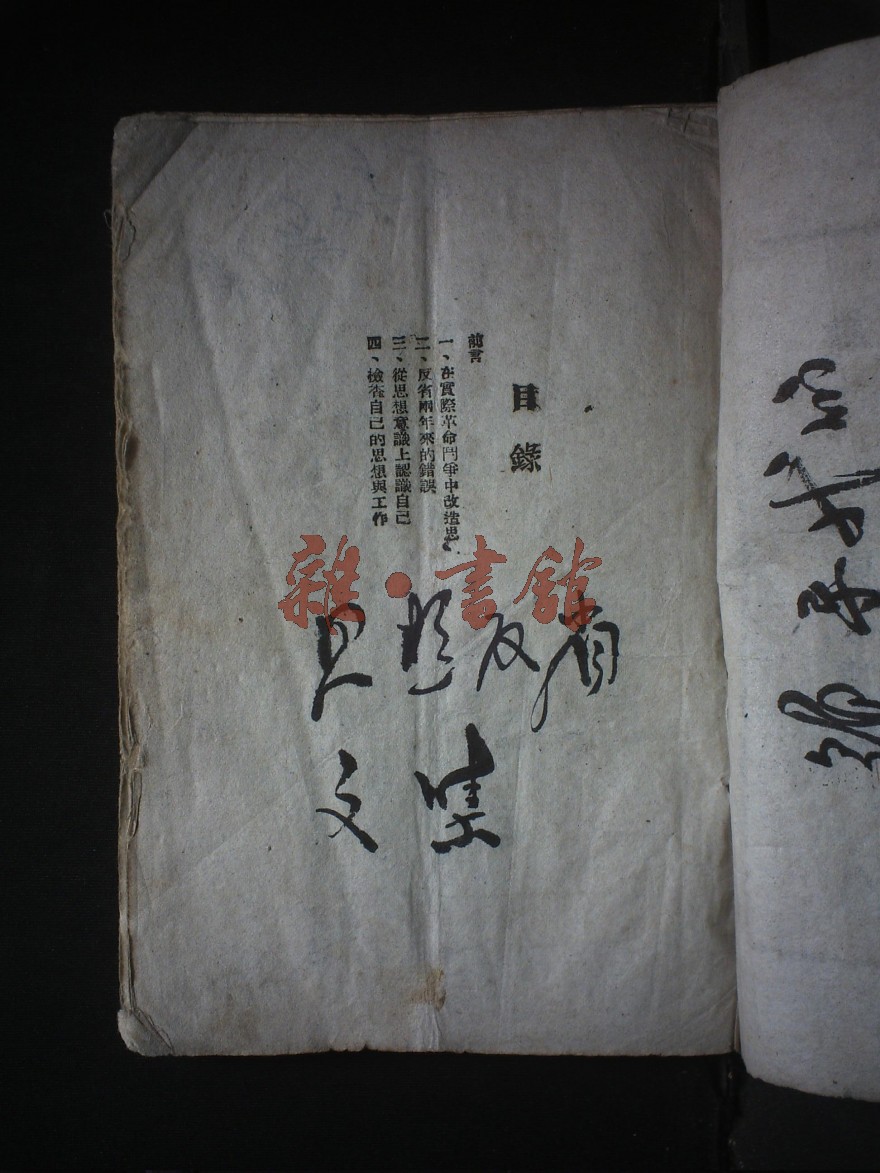 目錄
前言
一、在實際革命鬥爭中改造思
二、反省兩年來的錯誤
三、從思想意識上認識自己
四、檢查自己的思想與工作
雜·書館
思想反省
文集